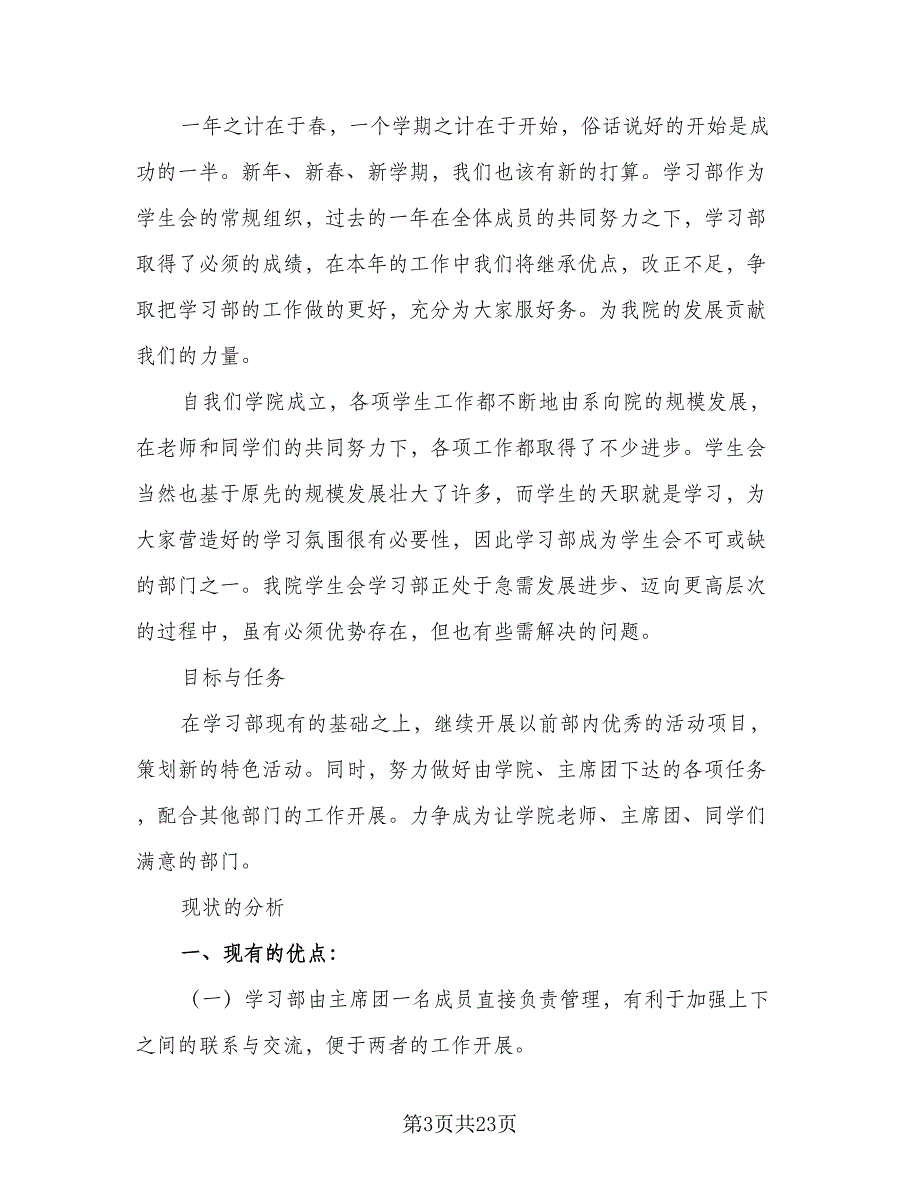 一年之计在于春，一个学期之计在于开始，俗话说好的开始是成
功的一半。新年、新春、新学期，我们也该有新的打算。学习部作为
学生会的常规组织，过去的一年在全体成员的共同努力之下，学习部
取得了必须的成绩，在本年的工作中我们将继承优点，改正不足，争
取把学习部的工作做的更好，充分为大家服好务。为我院的发展贡献
我们的力量。
自我们学院成立，各项学生工作都不断地由系向院的规模发展，
在老师和同学们的共同努力下，各项工作都取得了不少进步。学生会
当然也基于原先的规模发展壮大了许多，而学生的天职就是学习，为
大家营造好的学习氛围很有必要性，因此学习部成为学生会不可或缺
的部门之一。我院学生会学习部正处于急需发展进步、迈向更高层次
的过程中，虽有必须优势存在，但也有些需解决的问题。
目标与任务
在学习部现有的基础之上，继续开展以前部内优秀的活动项目，
策划新的特色活动。同时，努力做好由学院、主席团下达的各项任务
，配合其他部门的工作开展。力争成为让学院老师、主席团、同学们
满意的部门。
现状的分析
一、现有的优点：
（一）学习部由主席团一名成员直接负责管理，有利于加强上下
之间的联系与交流，便于两者的工作开展。
第3页共23页